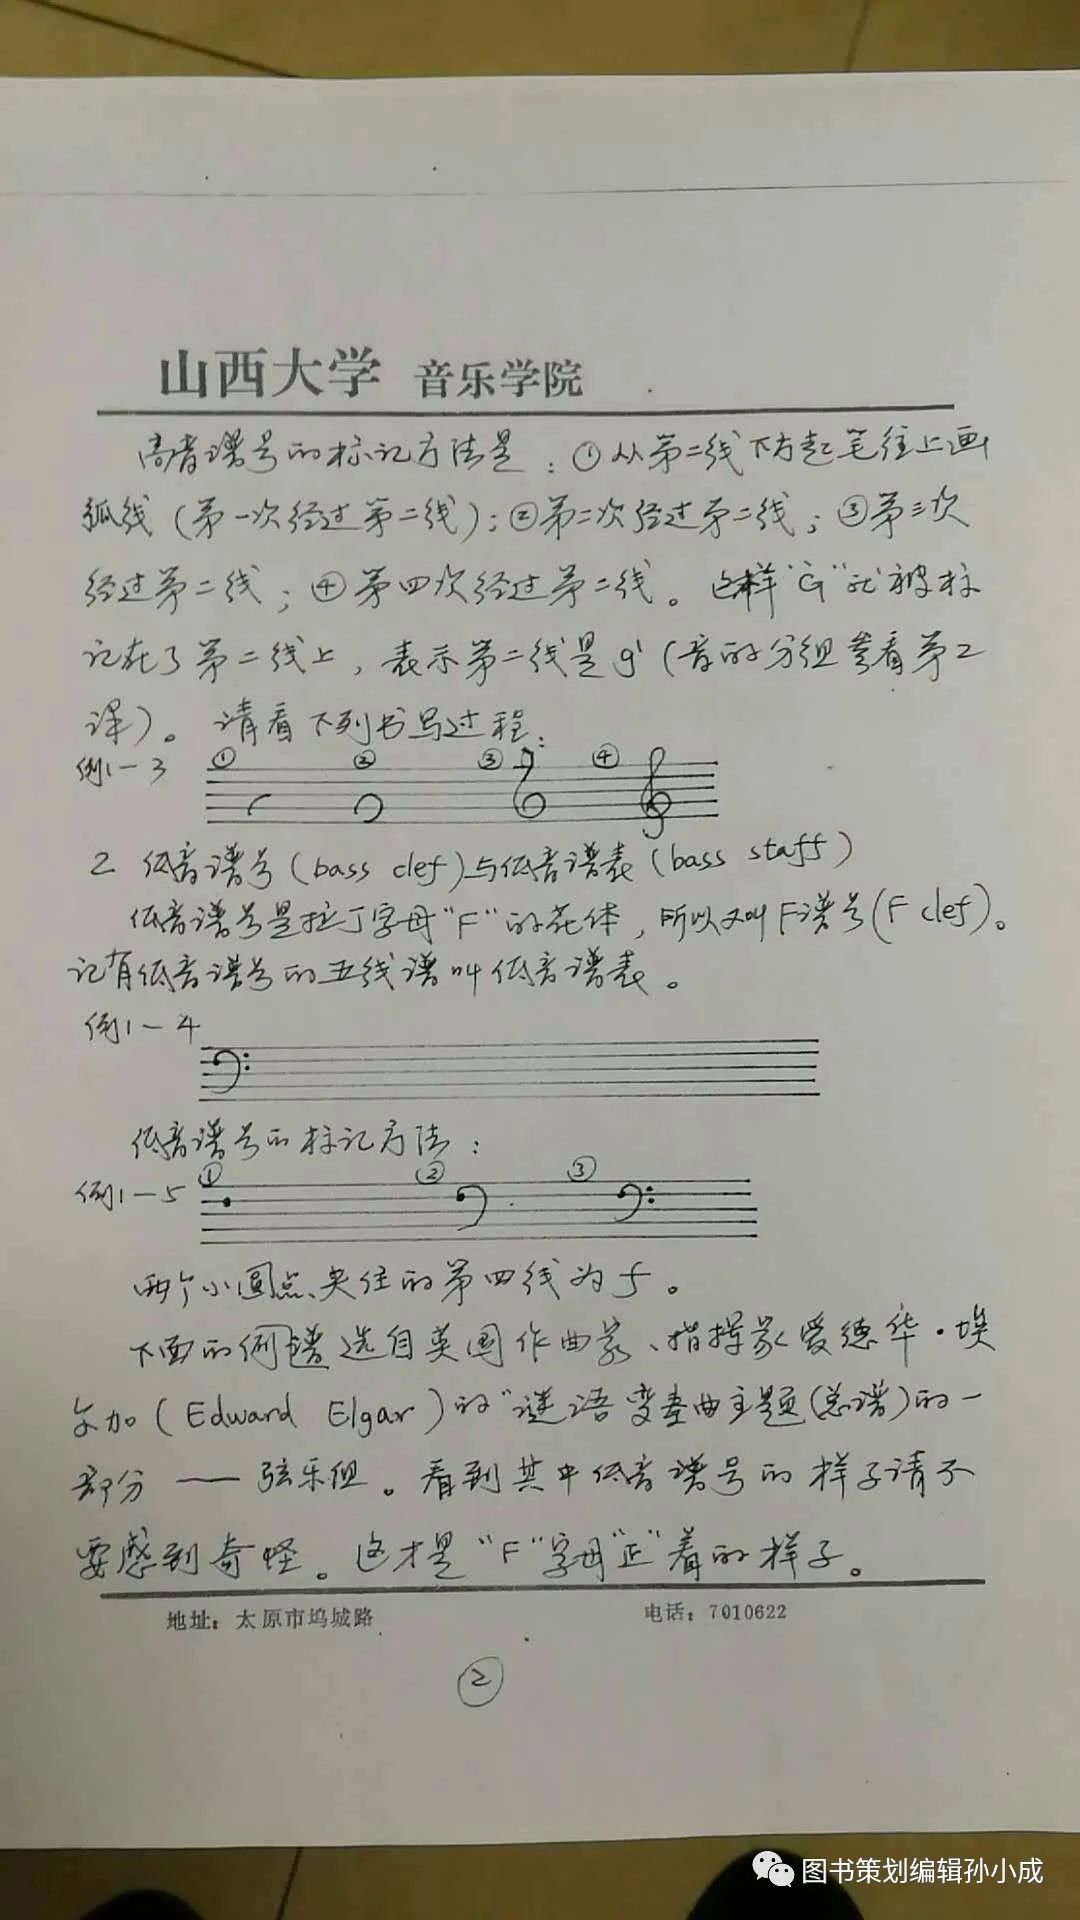 山西大学 音乐学院
高音谱号的标记方法是：①从第二线下方起笔往上画
弧线（第一次经过第二线）；②第二次经过第二线；③第三次
经过第二线；④第四次经过第二线。这样“G”就被标
记在了第二线上，表示第二线是g¹（音的分组参看第2
课）。请看下列书写过程：
例1-3 ① ② ③ ④
2 低音谱号（bass clef）与低音谱表（bass staff）
低音谱号是拉丁字母“F”的花体，所以又叫F谱号（F clef）。
记有低音谱号的五线谱叫低音谱表。
例1-4
低音谱号的标记方法：
例1-5 ① ② ③
两个小圆点夹住的第四线为f。
下面的例谱选自英国作曲家、指挥家爱德华·埃
尔加（Edward Elgar）的“谜语变奏曲主题（总谱）的一
部分——弦乐组。看到其中低音谱号的样子请不
要感到奇怪。这才是“F”字母“正”着的样子。
地址：太原市坞城路 电话：7010622
②
图书策划编辑孙小成